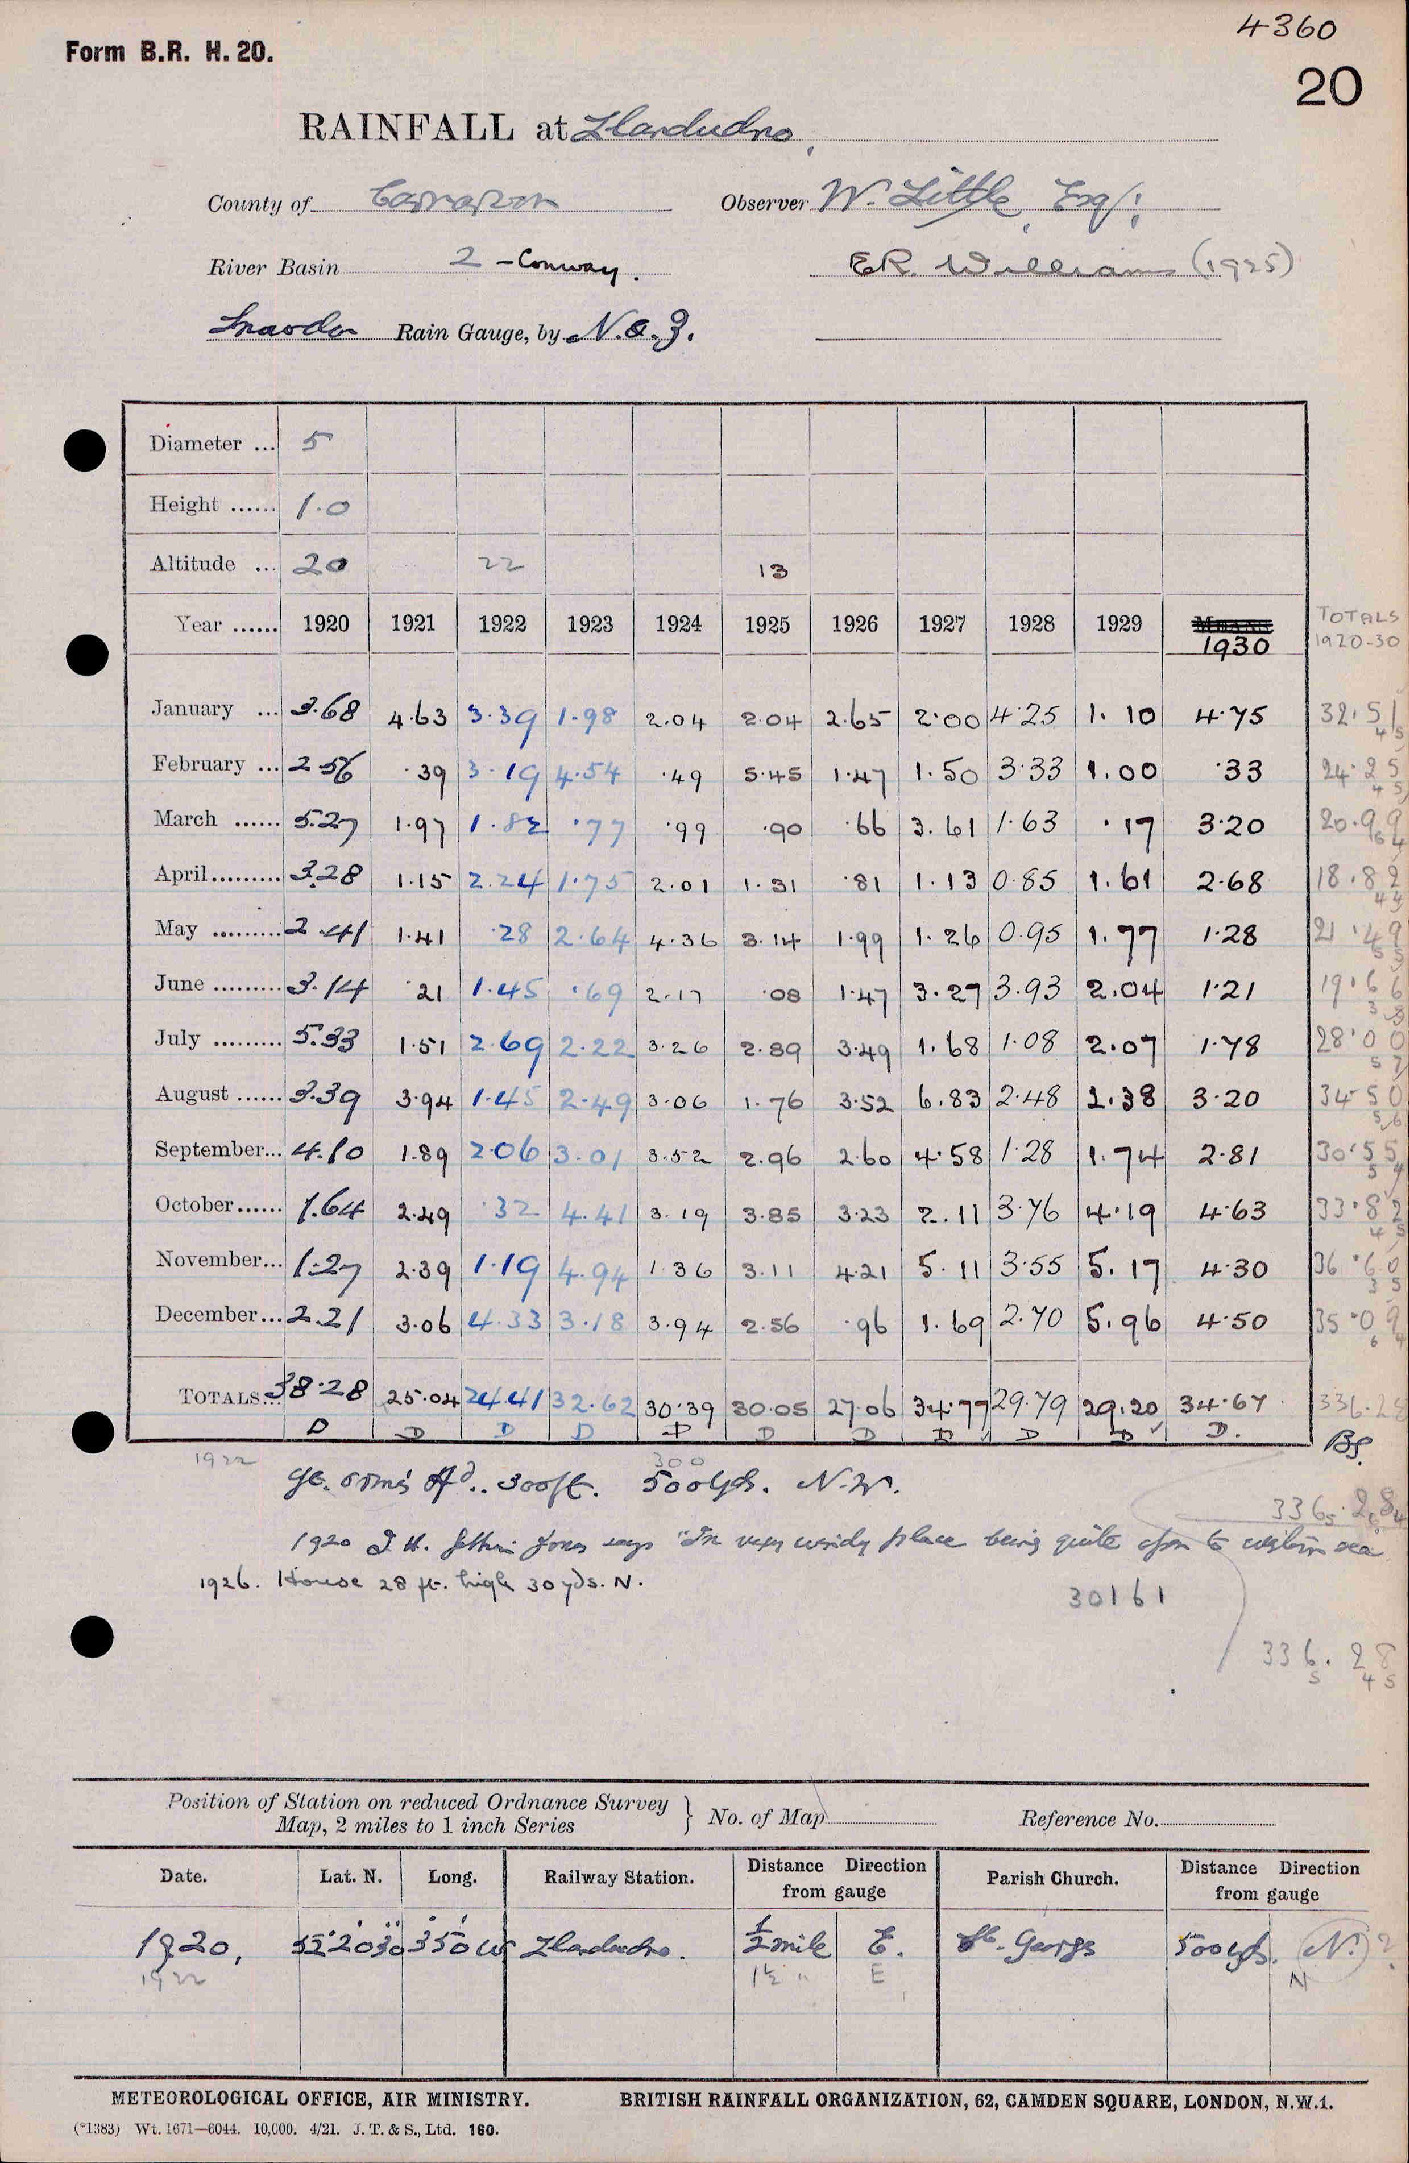 4360
Form B.R. H. 20.
20
RAINFALL at Llandudno,
County of Carnarvon Observer W. Little, Esq;
River Basin 2 - Conway. E.R. Williams (1925)
Snowdon Rain Gauge, by N. & Z.
Diameter ... 5
Height ...... 1.0
Altitude ... 20 22 13
Year ...... 1920 1921 1922 1923 1924 1925 1926 1927 1928 1929 1930 TOTALS 1920-30
January ... 3.68 4.63 3.39 1.98 2.04 2.04 2.65 2.00 4.25 1.10 4.75 32.51
February ... 2.56 .39 3.19 4.54 .49 5.45 1.47 1.50 3.33 1.00 .33 24.25
March ...... 5.27 1.97 1.82 .77 .99 .90 .66 3.61 1.63 .17 3.20 20.99
April ......... 3.28 1.15 2.24 1.75 2.01 1.31 .81 1.13 0.85 1.61 2.68 18.82
May ......... 2.41 1.41 .28 2.64 4.36 3.14 1.99 1.26 0.95 1.77 1.28 21.49
June ......... 3.14 .21 1.45 .69 2.17 .08 1.47 3.27 3.93 2.04 1.21 19.66
July ......... 5.33 1.51 2.69 2.22 3.26 2.89 3.49 1.68 1.08 2.07 1.78 28.00
August ...... 3.39 3.94 1.45 2.49 3.06 1.76 3.52 6.83 2.48 2.38 3.20 34.50
September... 4.10 1.89 2.06 3.01 3.52 2.96 2.60 4.58 1.28 1.74 2.81 30.55
October ...... 1.64 2.49 .32 4.41 3.19 3.85 3.23 2.11 3.76 4.19 4.63 33.82
November... 1.27 2.39 1.19 4.94 1.36 3.11 4.21 5.11 3.55 5.17 4.30 36.60
December... 2.21 3.06 4.33 3.18 3.94 2.56 .96 1.69 2.70 5.96 4.50 35.09
TOTALS... 38.28 25.04 24.41 32.62 30.39 30.05 27.06 34.77 29.79 29.20 34.67 336.28
D D D D D D D D D D D.
1922 300
Gt. Orme's Hd. 300ft. 500yds. N.W.
336.28
1920 says "In very windy place being quite open to western sea
1926. House 28 ft. high 30 yds. N.
30161
336.28
Position of Station on reduced Ordnance Survey Map, 2 miles to 1 inch Series } No. of Map Reference No.
Date. Lat. N. Long. Railway Station. Distance Direction from gauge Parish Church. Distance Direction from gauge
1920, 53° 20' 30" 3° 50' W Llandudno. ½ mile E. St. Georgs 500 yds. N. ?
1922 1½ " E N
METEOROLOGICAL OFFICE, AIR MINISTRY. BRITISH RAINFALL ORGANIZATION, 62, CAMDEN SQUARE, LONDON, N.W.1.
(*1383) Wt. 1671—6044. 10,000. 4/21. J. T. & S., Ltd. 160.